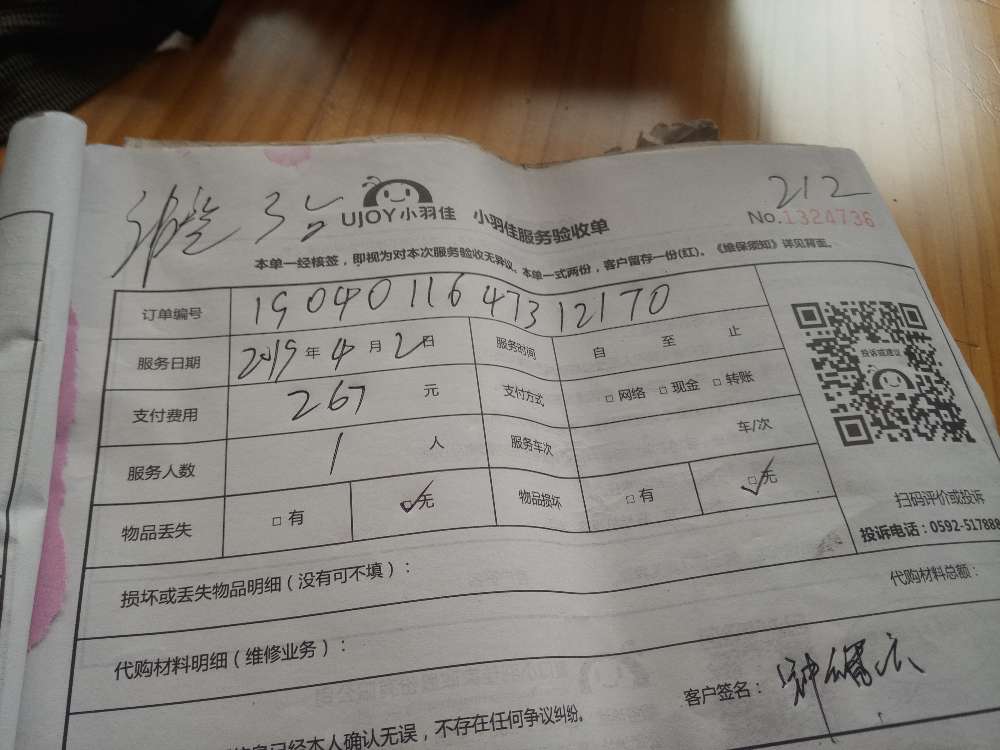 3台 212
UJOY小羽佳 小羽佳服务验收单 No.1324736
本单一经核签，即视为对本次服务验收无异议。本单一式两份，客户留存一份(红)。《维保须知》详见背面。
订单编号 1904011647312170
服务日期 2019年4月2日 服务时间 自 至 止
支付费用 267 元 支付方式 □网络 □现金 □转账
服务人数 1 人 服务车次 车/次
物品丢失 □有 ☑无 物品损坏 □有 ☑无
投诉或建议
扫码评价或投诉
投诉电话：0592-517888
损坏或丢失物品明细（没有可不填）：
代购材料明细（维修业务）： 代购材料总额：
客户签名：
已经本人确认无误，不存在任何争议纠纷。